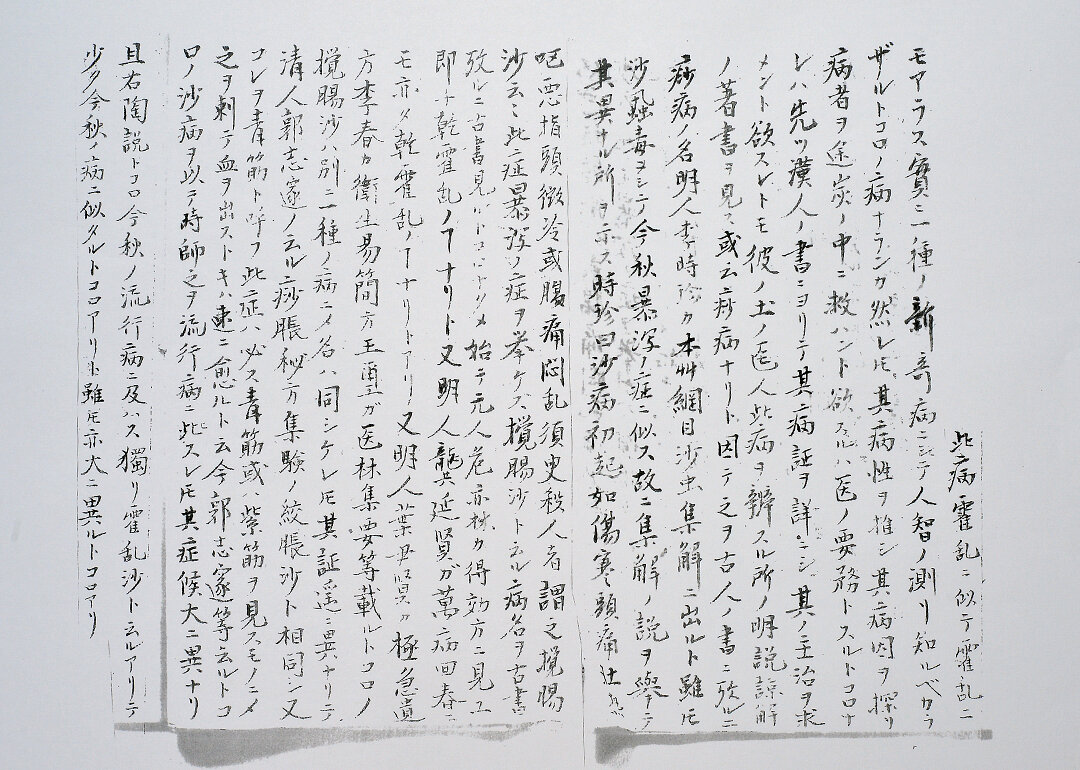 此病霍乱ニ似テ霍乱ニ
モアラス實ニ一種ノ新奇病ニシテ人智ノ測リ知ルベカラ
ザルトコロノ病ナランカ然レ𪜈其病性ヲ推シ其病因ヲ探リ
病者ヲ途炭ノ中ニ救ハント欲スルハ医ノ要務トスルトコロナ
レハ先ツ漢人ノ書ニヨリテ其病証ヲ詳ニシ其ノ主治ヲ求
メント欲スレトモ彼ノ土ノ医人此病ヲ辨スル所ノ明説諒解
ノ著書ヲ見ス或云痧病ナリト因テ之ヲ古人ノ書ニ攷ルニ
痧病ノ名明人李時珍カ本艸綱目沙虫集解ニ出ルト雖𪜈
沙蝨毒ヲシテ今秋暴瀉ノ症ニ似ス故ニ集解ノ説ヲ舉テ
其異ナル所ヲ示ス時珍曰沙病初起如傷寒頭痛壮熱
呕悪指頭微冷或腹痛悶乱須臾殺人者謂之搅腸
沙云〻此症暴瀉ノ症ヲ挙ケズ搅腸沙ト云ル病名ヲ古書
攷ルニ古書見ルトコロナクメ始テ元人危亦林カ得効方ニ見ユ
即チ乾霍乱ノ𪜀ナリト又明人龔廷賢ガ萬病回春ニ
モ亦タ乾霍乱ノ𪜀ナリトアリ又明人葉尹賢カ極急遺
方李春カ衛生易簡方王璽ガ医林集要等載ルトコロノ
搅腸沙ハ別ニ一種ノ病ニメ名ハ同シケレ𪜈其証遥ニ異ナリテ
清人郭志邃ノ云ル痧脹秘方集験ノ絞脹沙ト相同シ又
コレヲ青筋ト呼フ此症ハ必ス青筋或ハ紫筋ヲ見スモノニメ
之ヲ刺テ血ヲ出ストキハ速ニ愈ルト云今郭志邃等云ルトコ
ロノ沙病ヲ以テ時師之ヲ流行病ニ比スレ𪜈其症候大ニ異ナリ
且右陶説トコロ今秋ノ流行病ニ及ハス獨リ霍乱沙ト云ルアリテ
少ク今秋ノ病ニ似タルトコロアリト雖𪜈亦大ニ異ルトコロアリ